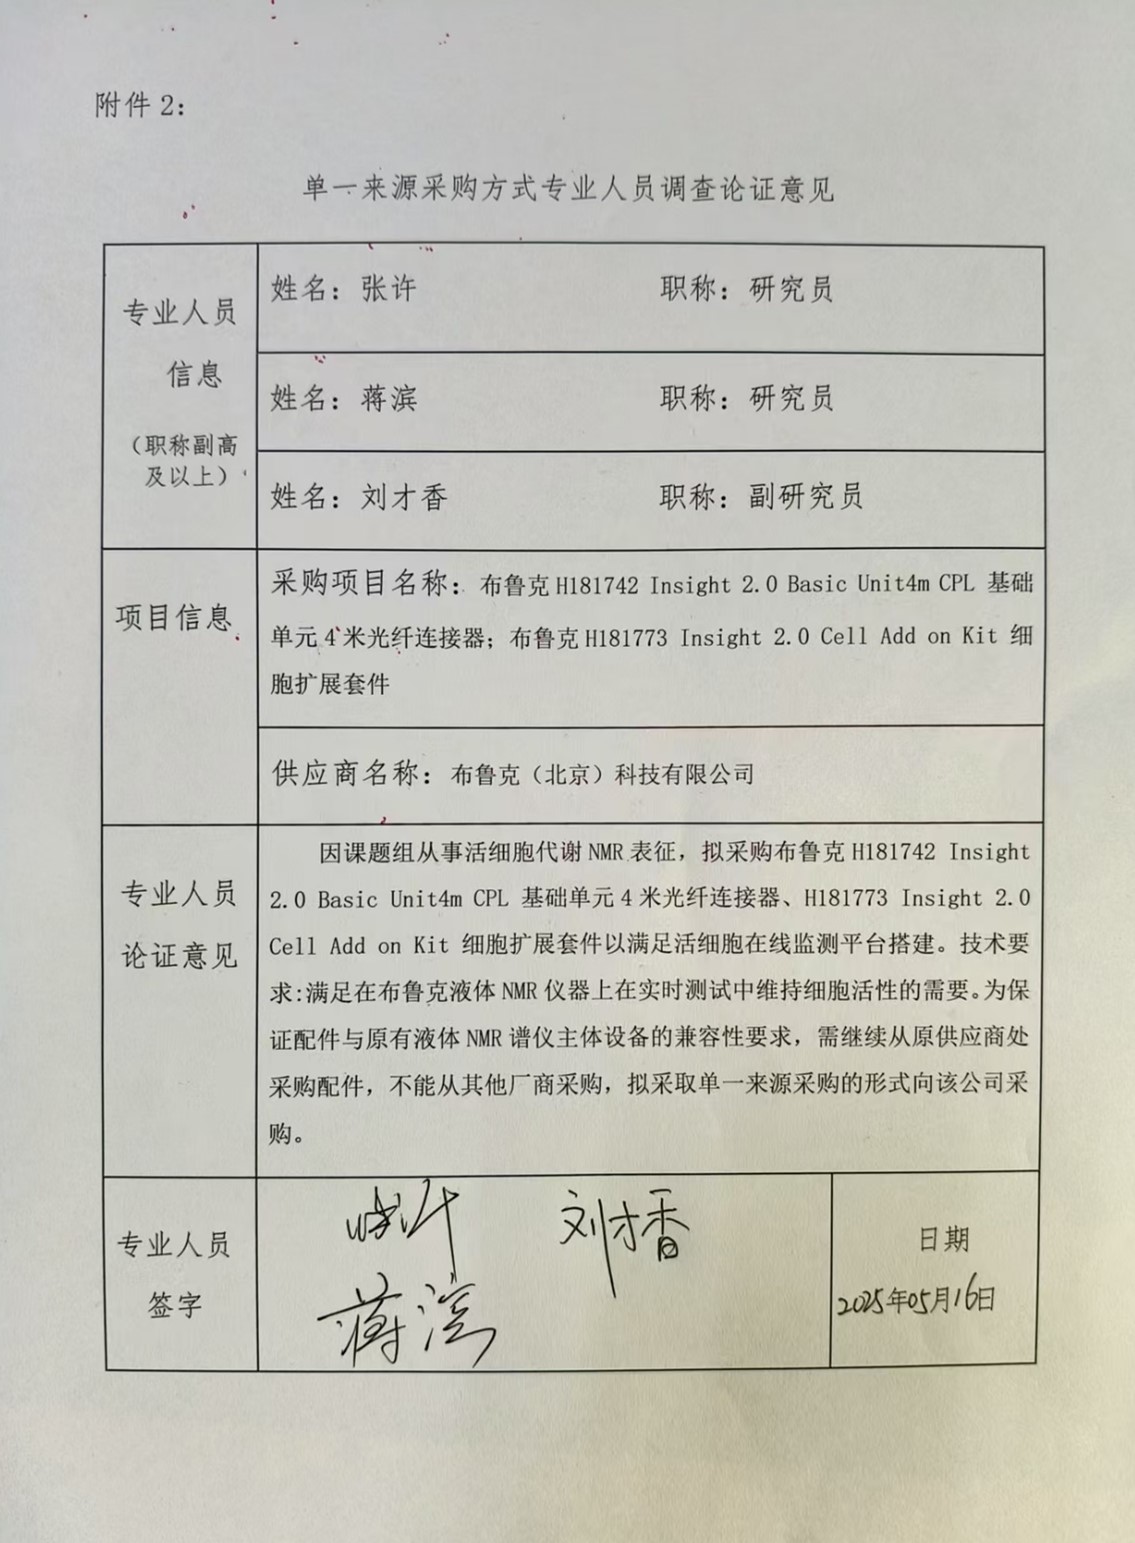 附件 2：
单一来源采购方式专业人员调查论证意见
专业人员
信息
（职称副高
及以上）
姓名：张许 职称：研究员
姓名：蒋滨 职称：研究员
姓名：刘才香 职称：副研究员
项目信息
采购项目名称：布鲁克 H181742 Insight 2.0 Basic Unit4m CPL 基础
单元 4 米光纤连接器；布鲁克 H181773 Insight 2.0 Cell Add on Kit 细
胞扩展套件
供应商名称：布鲁克（北京）科技有限公司
专业人员
论证意见
因课题组从事活细胞代谢 NMR 表征，拟采购布鲁克 H181742 Insight
2.0 Basic Unit4m CPL 基础单元 4 米光纤连接器、H181773 Insight 2.0
Cell Add on Kit 细胞扩展套件以满足活细胞在线监测平台搭建。技术要
求:满足在布鲁克液体 NMR 仪器上在实时测试中维持细胞活性的需要。为保
证配件与原有液体 NMR 谱仪主体设备的兼容性要求，需继续从原供应商处
采购配件，不能从其他厂商采购，拟采取单一来源采购的形式向该公司采
购。
专业人员
签字
张许 刘才香
蒋滨
日期
2025年05月16日